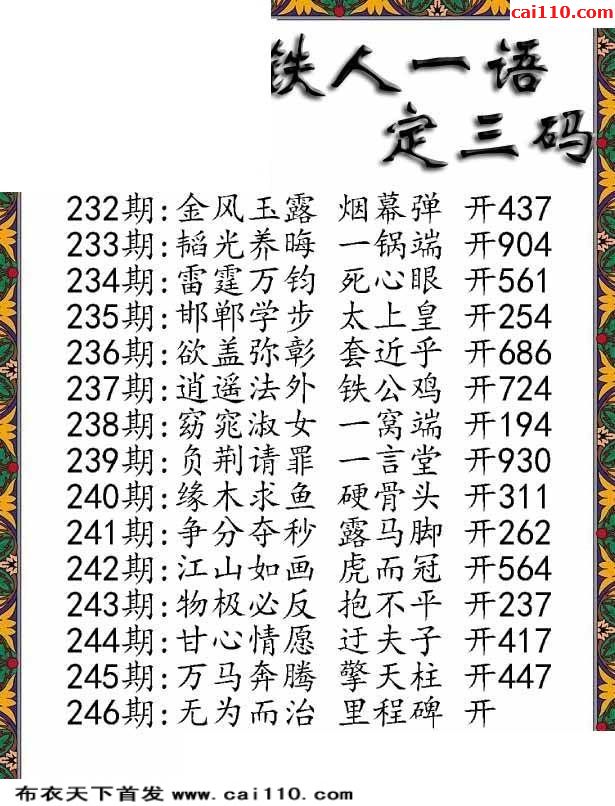 cai110.com
铁人一语
定三码
232期:金风玉露 烟幕弹 开437
233期:韬光养晦 一锅端 开904
234期:雷霆万钧 死心眼 开561
235期:邯郸学步 太上皇 开254
236期:欲盖弥彰 套近乎 开686
237期:逍遥法外 铁公鸡 开724
238期:窈窕淑女 一窝端 开194
239期:负荆请罪 一言堂 开930
240期:缘木求鱼 硬骨头 开311
241期:争分夺秒 露马脚 开262
242期:江山如画 虎而冠 开564
243期:物极必反 抱不平 开237
244期:甘心情愿 迂夫子 开417
245期:万马奔腾 擎天柱 开447
246期:无为而治 里程碑 开
布衣天下首发 www.cai110.com